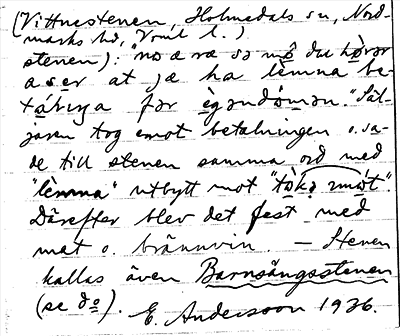 (Vittnestenen, Holmedals sn, Nord-
marks hd, Vrml l.)
stenen): "no æ ræ sə mô du hörər
a s e r at jæ ha lèmna be-
tálniŋa før ègəndómən." Säl-
jaren tog emot betalningen o. sa-
de till stenen samma ord med
"lèmna" utbytt mot "tòkə imót".
Därefter blev det fest med
mat o. brännvin. — Stenen
kallas även Barnsängsstenen
(se d:o). E. Andersson 1936.